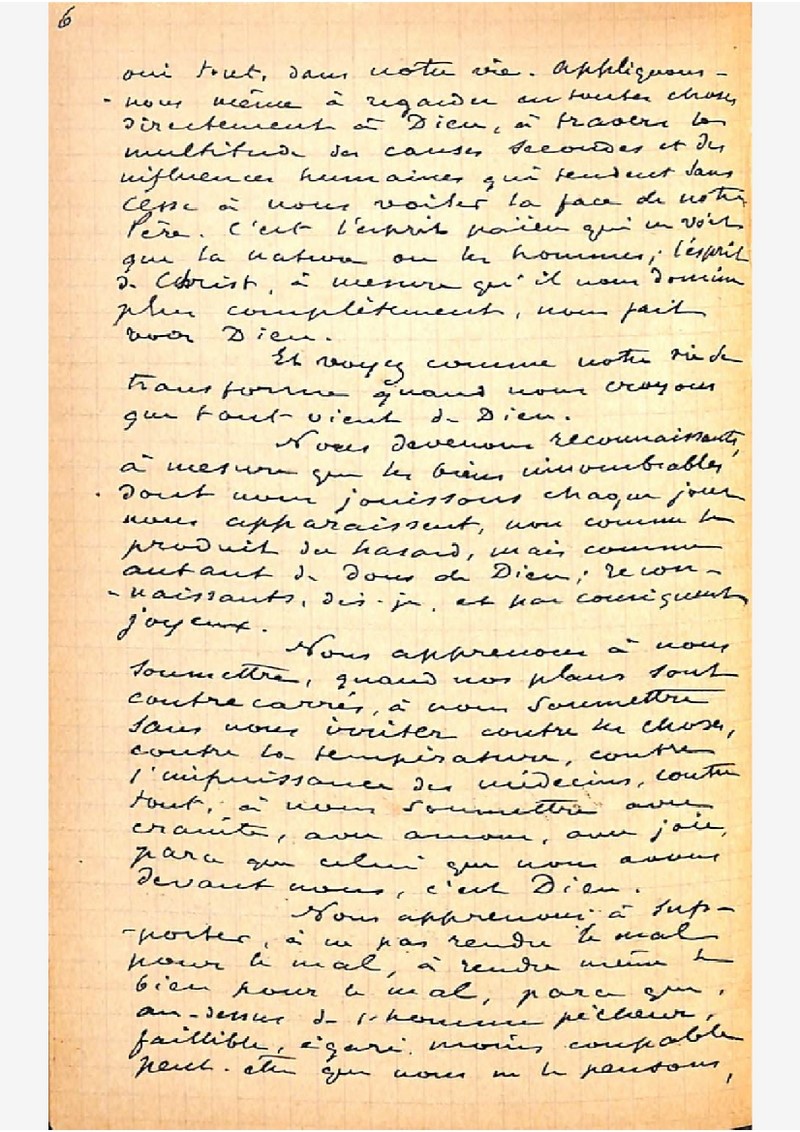 6
oui tout, dans notre vie. Appliquons-
-nous même à regarder en toutes choses
directement à Dieu, à travers la
multitude des causes secondes et des
influences humaines qui tendent sans
cesse à nous voiler la face de notre
Père. C'est l'esprit païen qui ne voit
que la nature ou les hommes; l'esprit
de Christ, à mesure qu'il nous domine
plus complètement, nous fait
voir Dieu.
Et voyez comme notre vie se
transforme quand nous croyons
que tout vient de Dieu.
Nous devenons reconnaissants,
à mesure que les biens innombrables
dont nous jouissons chaque jour
nous apparaissent, non comme le
produit du hasard, mais comme
autant de dons de Dieu; recon-
-naissants, dis-je, et par conséquent
joyeux.
Nous apprenons à nous
soumettre, quand nos plans sont
contrecarrés, à nous soumettre
sans nous irriter contre les choses,
contre la température, contre
l'impuissance des médecins, contre
tout; à nous soumettre avec
crainte, avec amour, avec joie,
parce que celui que nous avons
devant nous, c'est Dieu.
Nous apprenons à sup-
-porter, à ne pas rendre le mal
pour le mal, à rendre même le
bien pour le mal, parce que,
au-dessus de l'homme pécheur,
faillible, égaré, moins coupable
peut-être que nous ne le pensons,